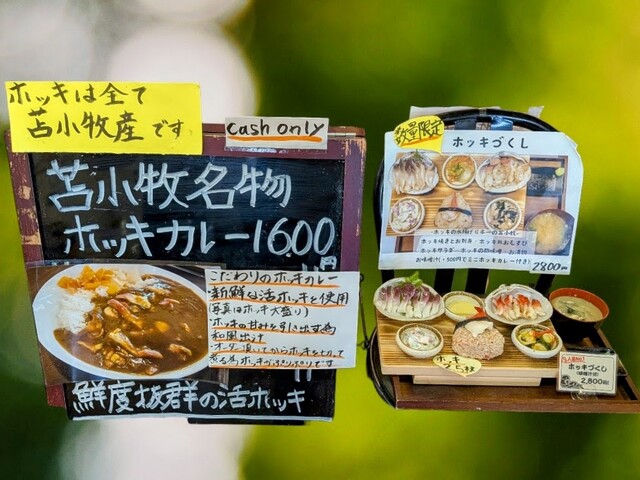 ホッキは全て
苫小牧産です
cash only
苫小牧名物
ホッキカレー1600円
こだわりのホッキカレー
新鮮な活ホッキを使用
(写真はホッキ大盛り)
・ホッキの甘みを引き出す為
和風出汁
・オーダー頂いてからホッキをむいて
煮る為ホッキがぷりぷりです
鮮度抜群の活ホッキ
数量限定
ホッキづくし
ホッキサラダ
2800円
ホッキづくし
2,800円